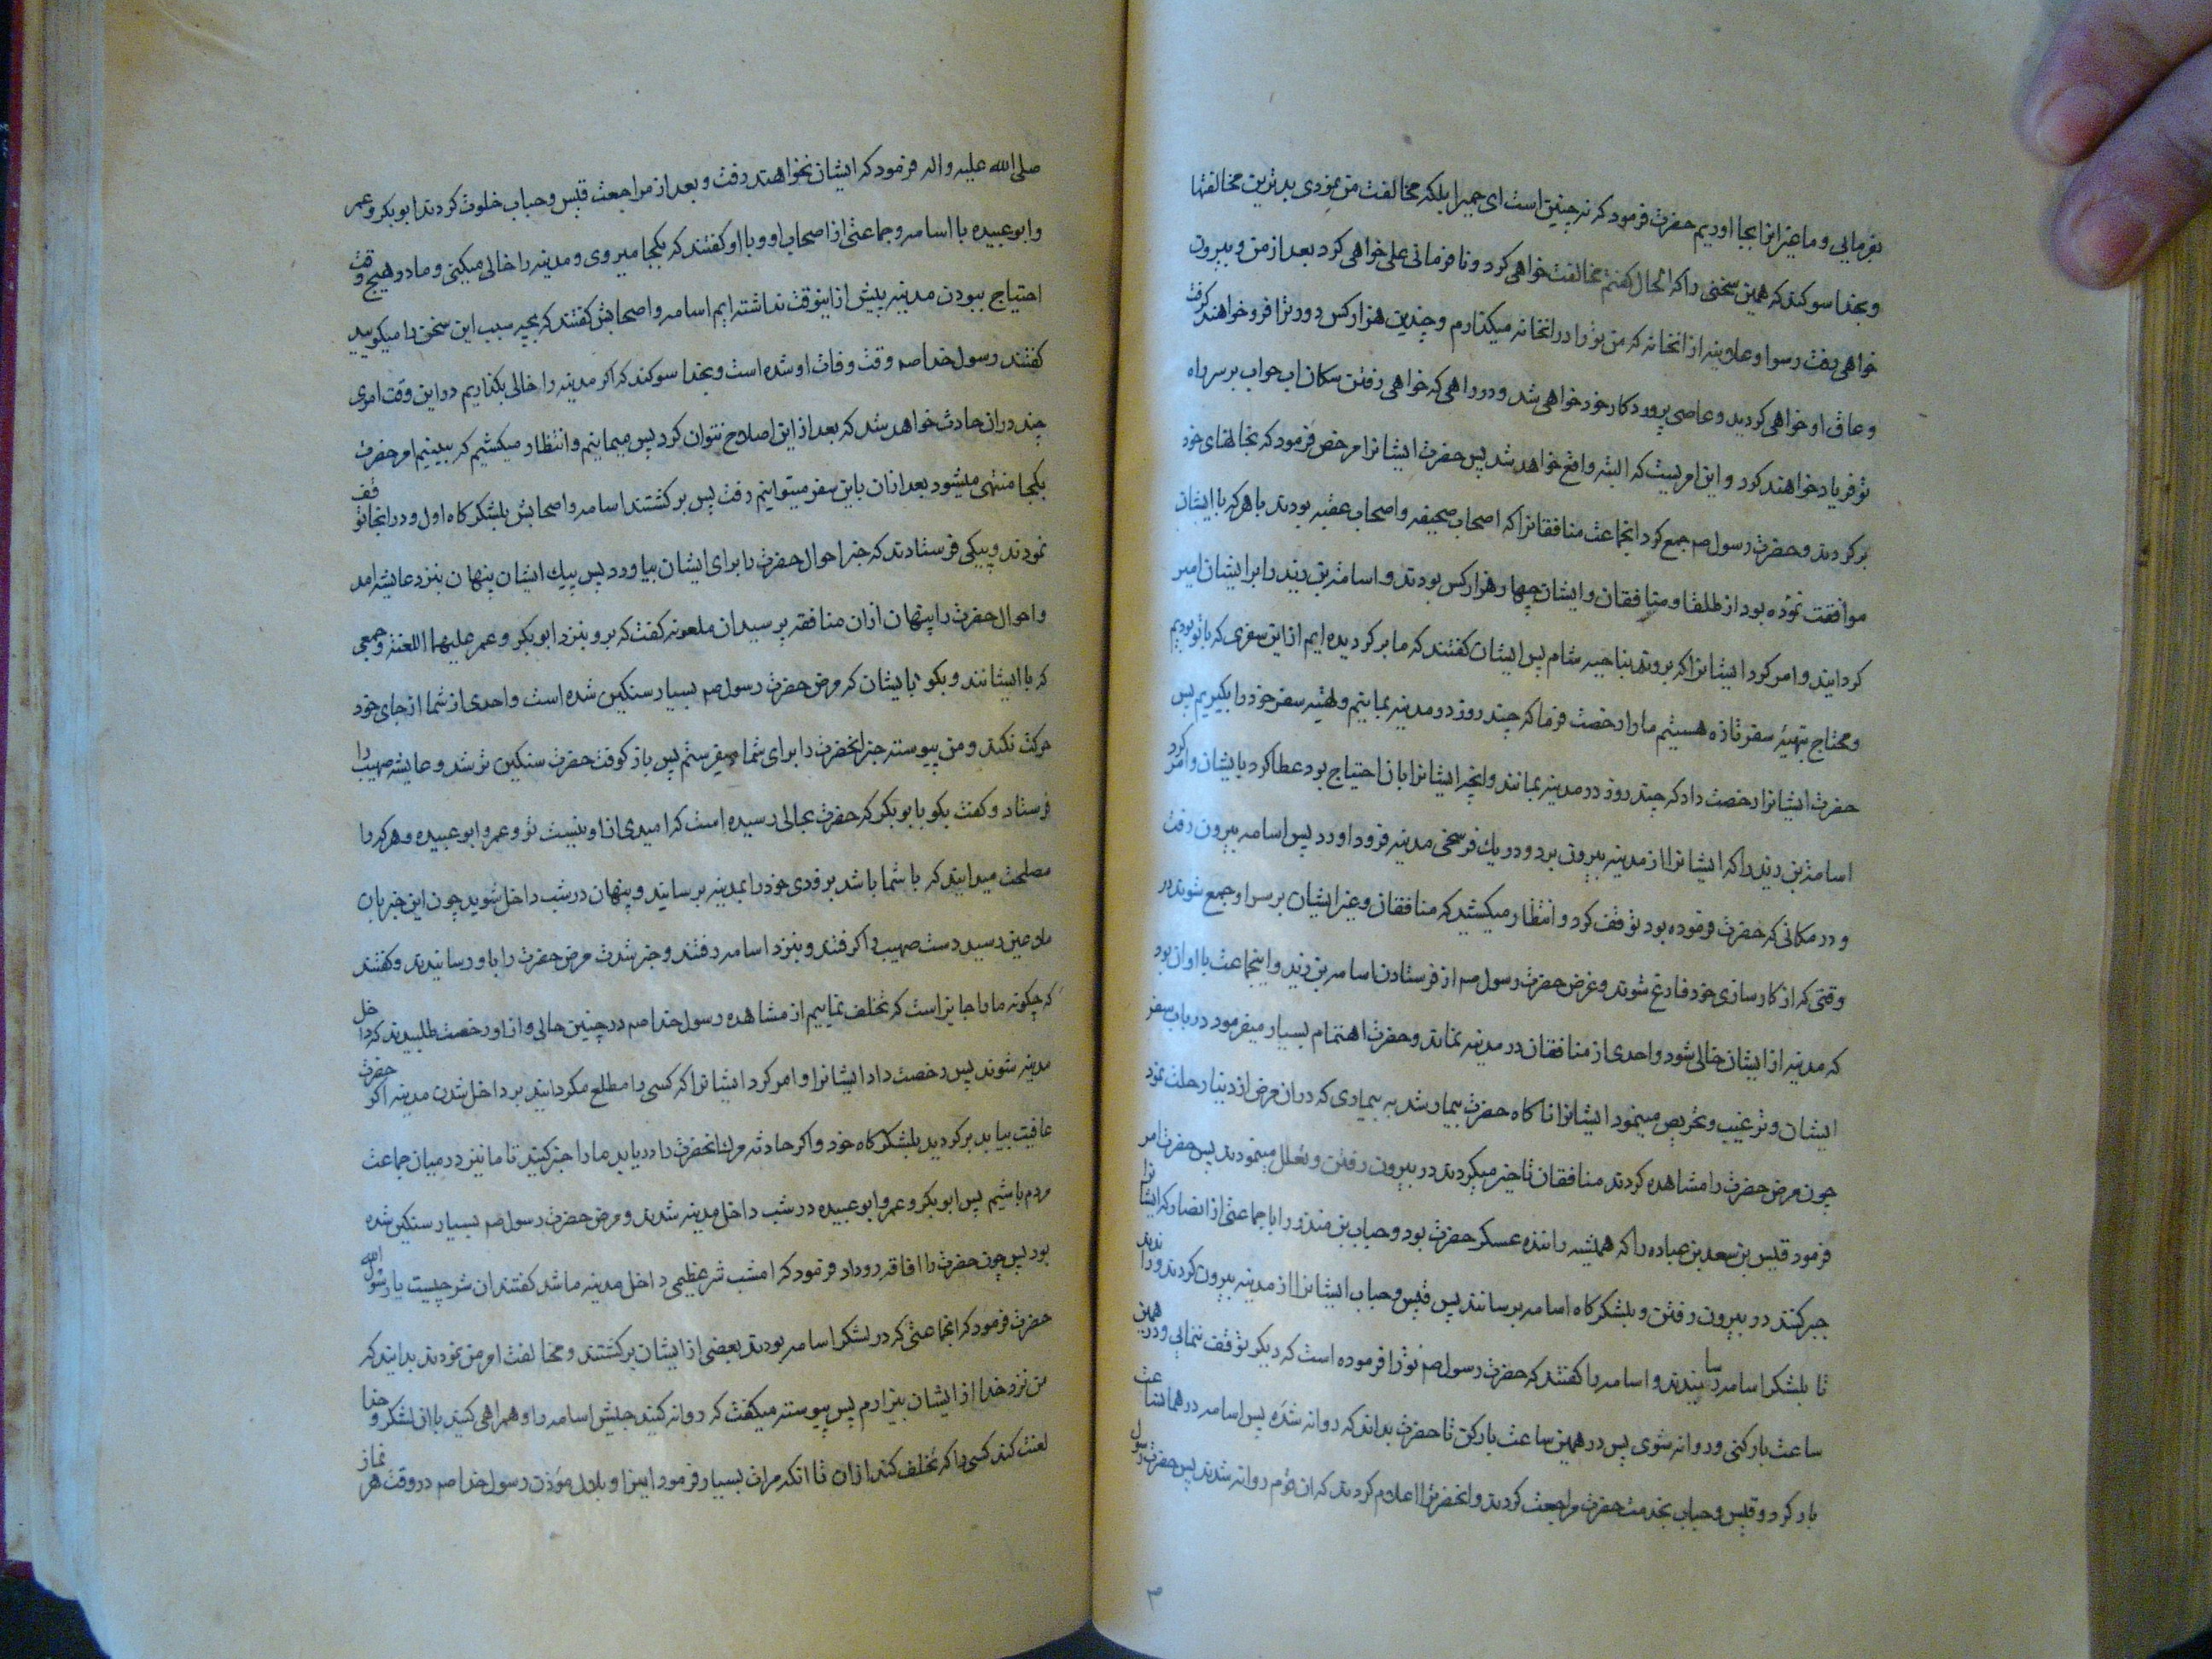 بفرمایی و ما غیر انرا بجا اوریم حضرت فرمود که نه چنین است ای حمیرا بلکه مخالفت من نمودی بدترین مخالفتها
و بخدا سوکند که همین سخنی را که الحال کفتم مخالفت خواهی کرد و نافرمانی علی خواهی کرد بعد از من و بیرون
خواهی رفت رسوا و علانیه از انخانه که من تو را در انخانه میکذارم و چندین هزار کس دور ترا فرو خواهند کرفت
و عاق او خواهی کردید و عاصی پروردکار خود خواهی شد و در راهی که خواهی رفتن سکان اب حواب بر سر راه
تو فریاد خواهند کرد و این امریست که البته واقع خواهد شد پس حضرت ایشانرا مرخص فرمود که بخانهای خود
برکردند و حضرت رسول صم جمع کرد انجماعت منافقانرا که اصحاب صحیفه و اصحاب عقبه بودند با هر که با ایشان
موافقت نموده بود از طلقا و منافقان و ایشان چهار هزار کس بودند و اسامة بن زید را بر ایشان امیر
کردانید و امر کرد ایشانرا که بروند بناحیه شام پس ایشان کفتند که ما برکردیده ایم از این سفری که با تو بودیم
و محتاج بتهیهٔ سفر تازه هستیم ما را رخصت فرما که چند روز در مدینه بمانیم و تهیه سفر خود را بکیریم پس
حضرت ایشانرا رخصت داد که چند روز در مدینه بمانند و انچه ایشانرا بان احتیاج بود عطا کرد بایشان و امر کرد
اسامة بن زید را که ایشانرا از مدینه بیرون برد و در یک فرسخی مدینه فرود اورد پس اسامه بیرون رفت
و در مکانی که حضرت فرموده بود توقف کرد و انتظار میکشید که منافقان و غیر ایشان بر سر او جمع شوند در
وقتی که از کارسازی خود فارغ شوند و غرض حضرت رسول صم از فرستادن اسامه بن زید و اینجماعت با او ان بود
که مدینه از ایشان خالی شود و احدی از منافقان در مدینه نماند و حضرت اهتمام بسیار میفرمود در باب سفر
ایشان و ترغیب و تحریص مینمود ایشانرا ناکاه حضرت بیمار شد به بیماری که در ان مرض از دنیا رحلت نمود
چون مرض حضرت را مشاهده کردند منافقان تاخیر میکردند در بیرون رفتن و تعلل مینمودند پس حضرت امر
فرمود قیس بن سعد بن عباده را که همیشه راننده عسکر حضرت بود و حباب بن منذر را با جماعتی از انصار که ایشانرا
جبر کنند در بیرون رفتن و بلشکرکاه اسامه برسانند پس قیس و حباب ایشانرا از مدینه بیرون کردند و راندند
تا بلشکر اسامه رسانیدند و اسامه را کفتند که حضرت رسول صم تو را فرموده است که دیکر توقف ننمایی و در همین
ساعت بار کنی و روانه شوی پس در همین ساعت بار کن تا حضرت بداند که روانه شدهٔ پس اسامه در همان ساعت
بار کرد و قیس و حباب بخدمت حضرت مراجعت کردند و انحضرترا اعلام کردند که ان قوم روانه شدند پس حضرت رسول
۳
صلی الله علیه واله فرمود که ایشان نخواهند رفت و بعد از مراجعت قیس و حباب خلوت کردند ابوبکر و عمر
و ابو عبیده با اسامه و جماعتی از اصحاب او و با او کفتند که بکجا میروی و مدینه را خالی میکنی و ما در هیچ وقت
احتیاج ببودن مدینه بیش از اینوقت نداشته ایم اسامه و اصحابش کفتند که بچه سبب این سخن را میکویید
کفتند رسول خدا صم وقت وفات او شده است و بخدا سوکند که اکر مدینه را خالی بکذاریم در این وقت اموری
چند در ان حادث خواهد شد که بعد از این اصلاح نتوان کرد پس میمانیم و انتظار میکشیم که ببینیم امر حضرت
بکجا منتهی میشود بعد از ان باین سفر میتوانیم رفت پس برکشتند اسامه و اصحابش بلشکرکاه اول و در انجا توقف
نمودند و پیکی فرستادند که خبر احوال حضرت را برای ایشان بیاورد پس پیک ایشان پنهان بنزد عایشه امد
و احوال حضرت را پنهان از ان منافقه پرسید ان ملعونه کفت که برو بنزد ابوبکر و عمر علیهما اللعنة و جمعی
که با ایشانند و بکو بایشان که مرض حضرت رسول صم بسیار سنکین شده است و احدی از شما از جای خود
حرکت نکند و من پیوسته خبر انحضرت را برای شما میفرستم پس باز کوفت حضرت سنکین تر شد و عایشه صهیب را
فرستاد و کفت بکو با بوبکر که حضرت بحالی رسیده است که امیدی از او نیست تو و عمر و ابو عبیده و هر که را
مصلحت میدانید که با شما باشد بزودی خود را بمدینه برسانید و پنهان در شب داخل شوید چون این خبر بان
ملاعین رسید دست صهیب را کرفتند و بنزد اسامه رفتند و خبر شدت مرض حضرت را باو رسانیدند و کفتند
که چکونه ما را جایز است که تخلف نماییم از مشاهده رسول خدا صم در چنین حالی و از او رخصت طلبیدند که داخل
مدینه شوند پس رخصت داد ایشانرا و امر کرد ایشانرا که کسی را مطلع مکردانید بر داخل شدن مدینه اکر حضرت
عافیت بیابد برکردید بلشکرکاه خود و اکر حادثه مرک انحضرت را دریابد ما را خبر کنید تا ما نیز در میان جماعت
مردم باشیم پس ابوبکر و عمر و ابو عبیده در شب داخل مدینه شدند و مرض حضرت رسول صم بسیار سنکین شده
بود پس چون حضرت را افاقه رو داد فرمود که امشب شر عظیمی داخل مدینه ما شد کفتند ان شر چیست یا رسول الله
حضرت فرمود که انجماعتی که در لشکر اسامه بودند بعضی از ایشان برکشتند و مخالفت امر من نمودند بدانید که
من نزد خدا از ایشان بیزارم پس پیوسته میکفت که روانه کنید جیش اسامه را و همراهی کنید با ان لشکر و خدا
لعنت کند کسی را که تخلف کند از ان تا انکه مرات بسیار فرمود اینرا و بلال موذن رسول خدا صم در وقت هر نماز